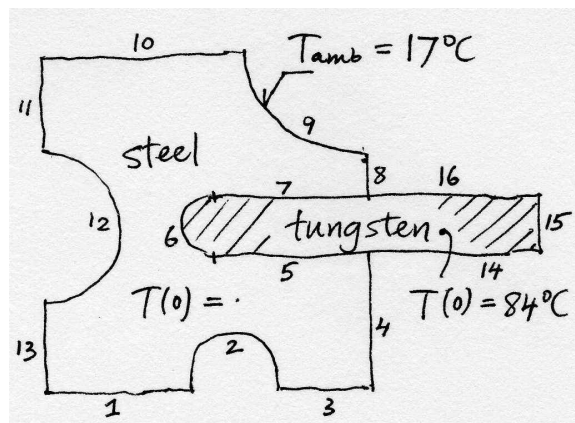 10
Tamb = 17°C
11
9
steel
8
7
16
12
6
tungsten
15
5
14
T(0) = .
T(0) = 84°C
4
13
2
1
3